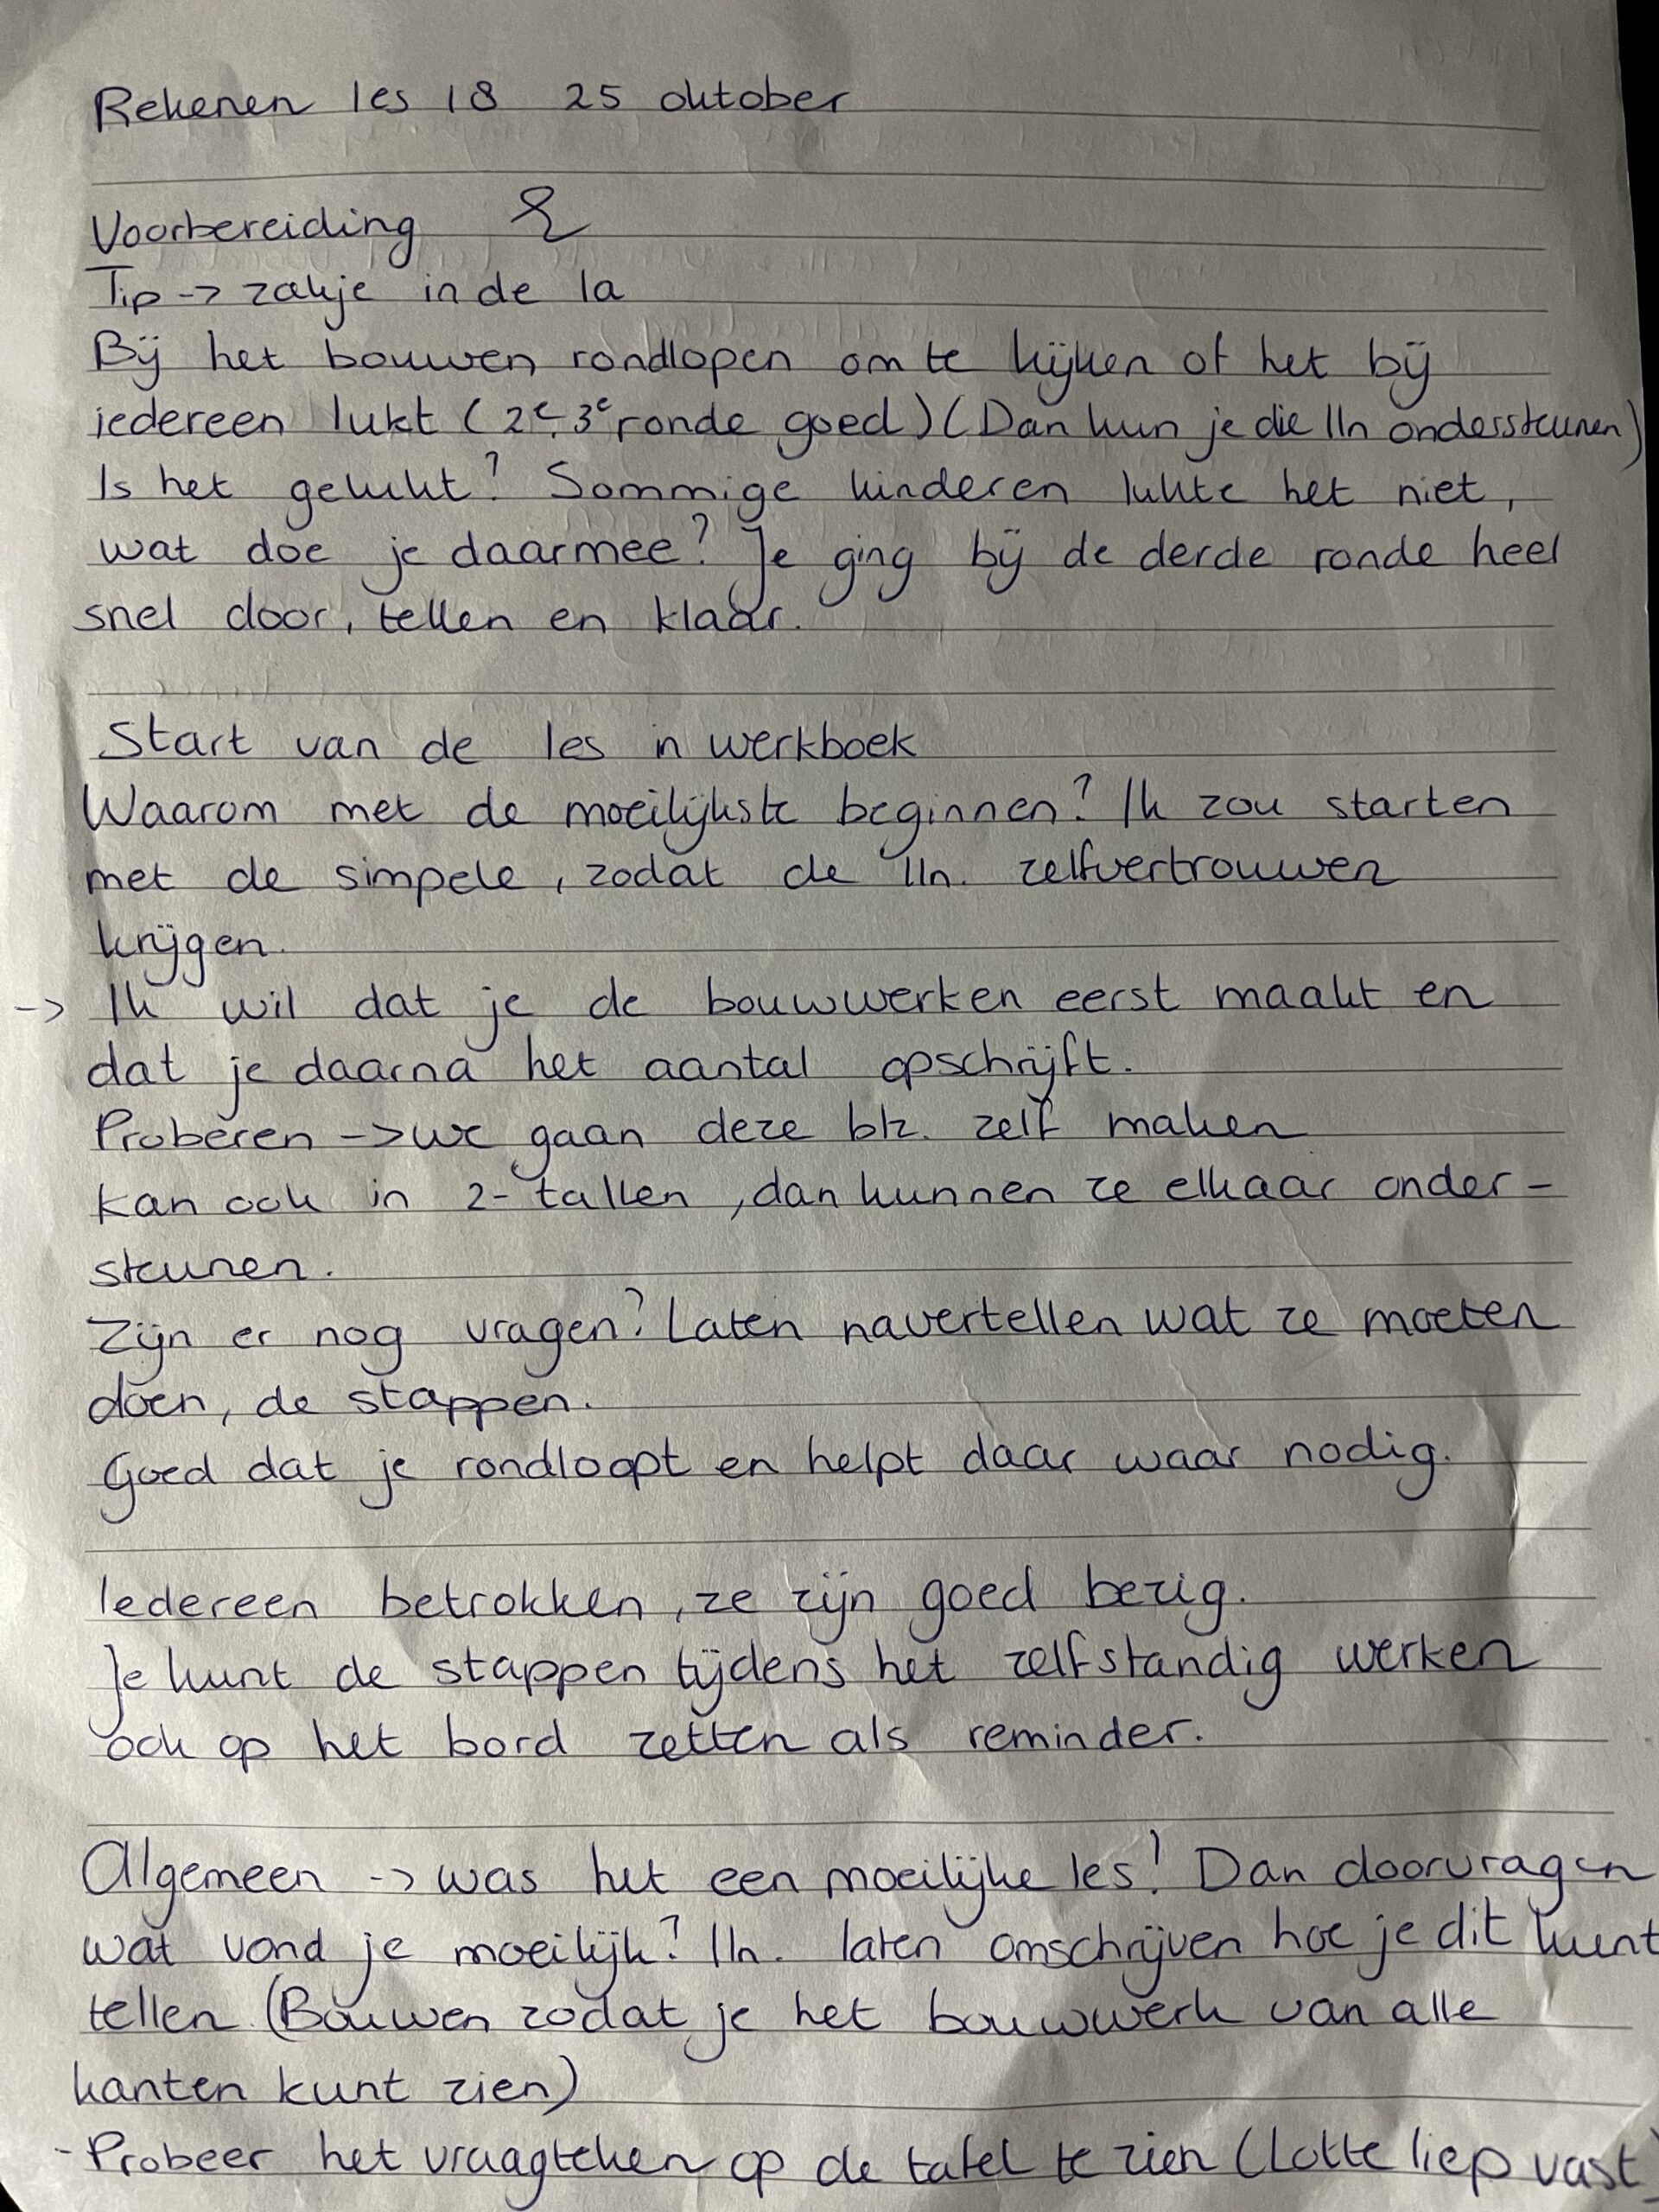 Rekenen les 18 25 oktober
Voorbereiding
Tip -> zakje in de la
Bij het bouwen rondlopen om te kijken of het bij
iedereen lukt (2e, 3e ronde goed) (Dan kun je die lln ondersteunen)
Is het gelukt? Sommige kinderen lukte het niet,
wat doe je daarmee? Je ging bij de derde ronde heel
snel door, tellen en klaar.
Start van de les n werkboek
Waarom met de moeilijkste beginnen? Ik zou starten
met de simpele, zodat de lln. zelfvertrouwen
krijgen.
-> Ik wil dat je de bouwwerken eerst maakt en
dat je daarna het aantal opschrijft.
Proberen -> we gaan deze blz. zelf maken
kan ook in 2-tallen, dan kunnen ze elkaar onder-
steunen.
Zijn er nog vragen? Laten navertellen wat ze moeten
doen, de stappen.
Goed dat je rondloopt en helpt daar waar nodig.
Iedereen betrokken, ze zijn goed bezig.
Je kunt de stappen tijdens het zelfstandig werken
ook op het bord zetten als reminder.
Algemeen -> was het een moeilijke les! Dan doorvragen
wat vond je moeilijk? lln. laten omschrijven hoe je dit kunt
tellen (Bouwen zodat je het bouwwerk van alle
kanten kunt zien)
- Probeer het vraagteken op de tafel te zien (Lotte liep vast)